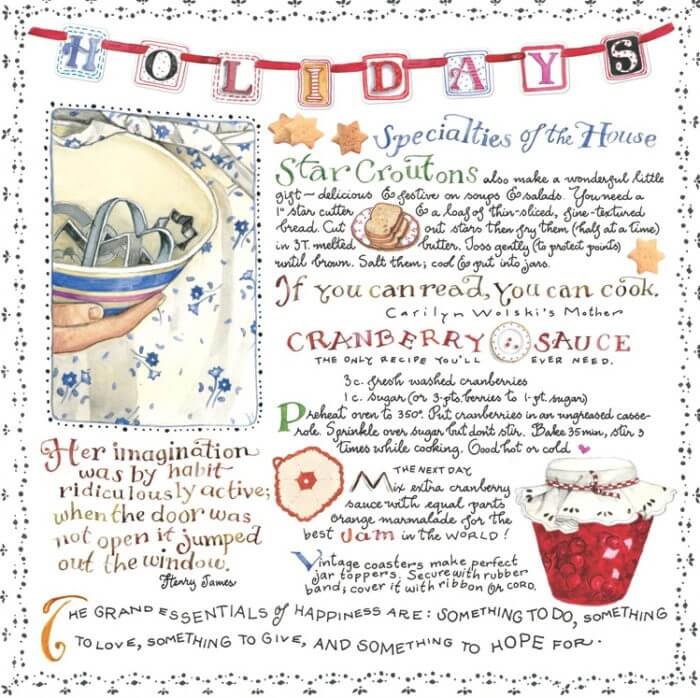 HOLIDAYS
Specialties of the House
Star Croutons also make a wonderful little
gift — delicious & festive on soups & salads. You need a
1" star cutter & a loaf of thin-sliced, fine-textured
bread. Cut out stars then fry them (half at a time)
in 3T. melted butter. Toss gently (to protect points)
until brown. Salt them; cool & put into jars.
If you can read, you can cook.
Carilyn Wolski's Mother
CRANBERRY SAUCE
THE ONLY RECIPE YOU'LL EVER NEED.
3 c. fresh washed cranberries
1 c. sugar (or 3-pts. berries to 1-pt. sugar)
Preheat oven to 350°. Put cranberries in an ungreased casse-
role. Sprinkle over sugar but don't stir. Bake 35 min, stir 3
times while cooking. Good hot or cold
THE NEXT DAY
Mix extra cranberry
sauce with equal parts
orange marmalade for the
best Jam in the WORLD!
Vintage coasters make perfect
jar toppers. Secure with rubber
band; cover it with ribbon OR CORD.
Her imagination
was by habit
ridiculously active;
when the door was
not open it jumped
out the window.
Henry James
THE GRAND ESSENTIALS of HAPPINESS ARE: SOMETHING TO DO, SOMETHING
TO LOVE, SOMETHING TO GIVE, AND SOMETHING TO HOPE FOR.